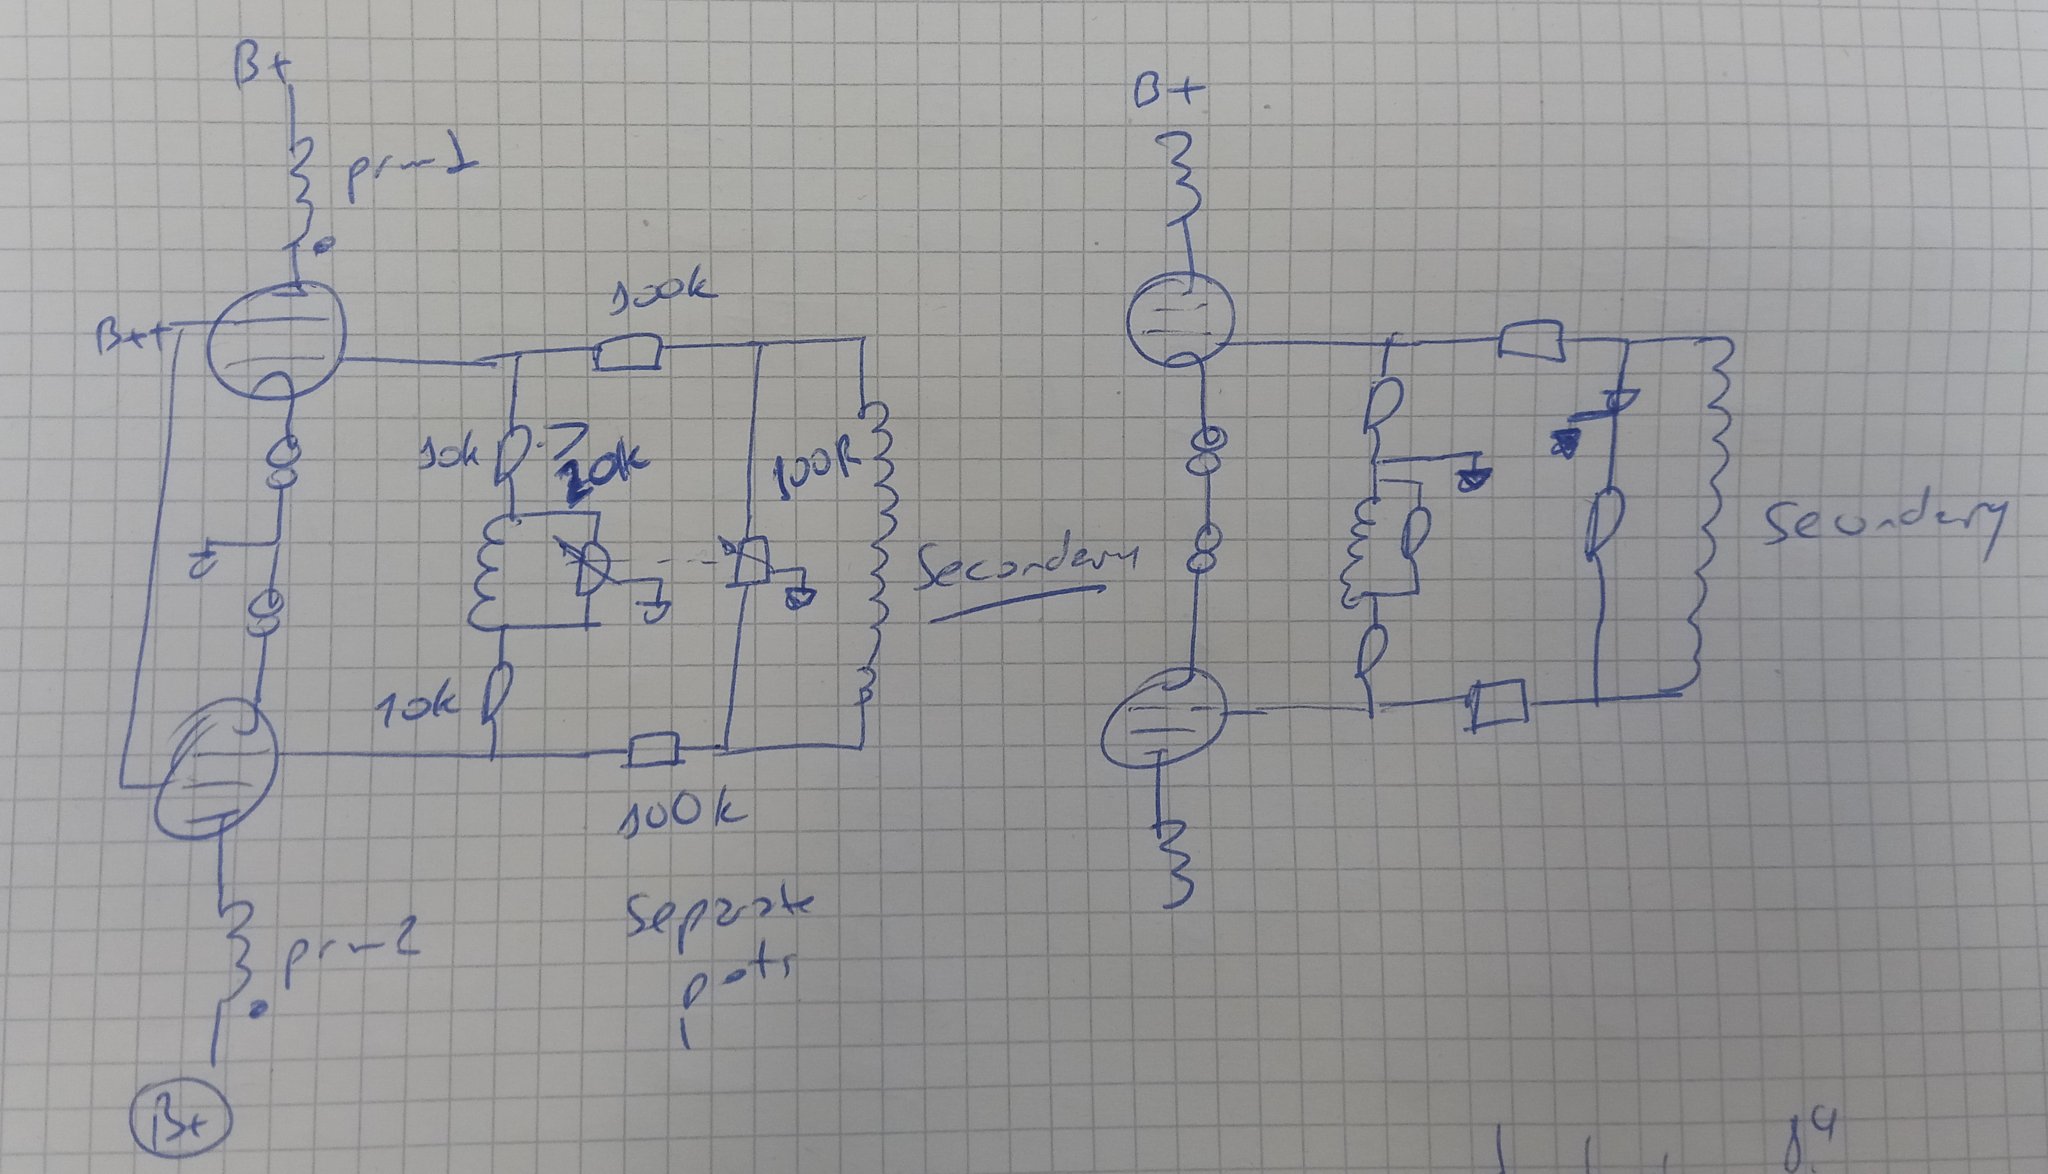 B+
prm1
B++
100k
10k
20k
100R
Secondary
10k
100k
prm2
Separate
pots
B+
B+
Secondary